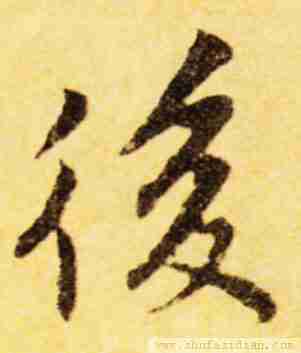 後
www.shufazidian.com